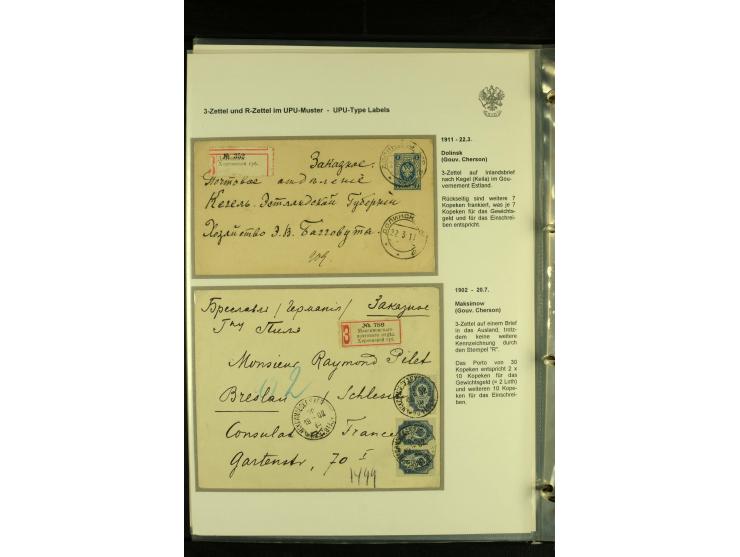 3-Zettel und R-Zettel im UPU-Muster - UPU-Type Labels
1911 - 22.3.
Dolinsk
(Gouv. Cherson)
3-Zettel auf Inlandsbrief
nach Kegel (Keila) im Gou-
vernement Estland.
Rückseitig sind weitere 7
Kopeken frankiert, was je 7
Kopeken für das Gewichts-
geld und für das Einschrei-
ben entspricht.
№ 352
Херсонской губ.
Заказное.
Почтовое отдѣленіе
Кегель. Эстляндской Губерніи
Хозяйство Э. В. Багговута.
22 3 11
1902 - 20.7.
Maksimow
(Gouv. Cherson)
3-Zettel auf einem Brief
in das Ausland, trotz-
dem keine weitere
Kennzeichnung durch
den Stempel "R".
Das Porto von 30
Kopeken entspricht 2 x
10 Kopeken für das
Gewichtsgeld (= 2 Loth)
und weiteren 10 Kope-
ken für das Einschrei-
ben.
Бреславль / Германія / Заказное
Гну Пиле
3
№ 758
Херсонской губ.
Monsieur Raymond Pilet
Breslau / Schlesien
Consulat de France
Gartenstr, 70 I
1499